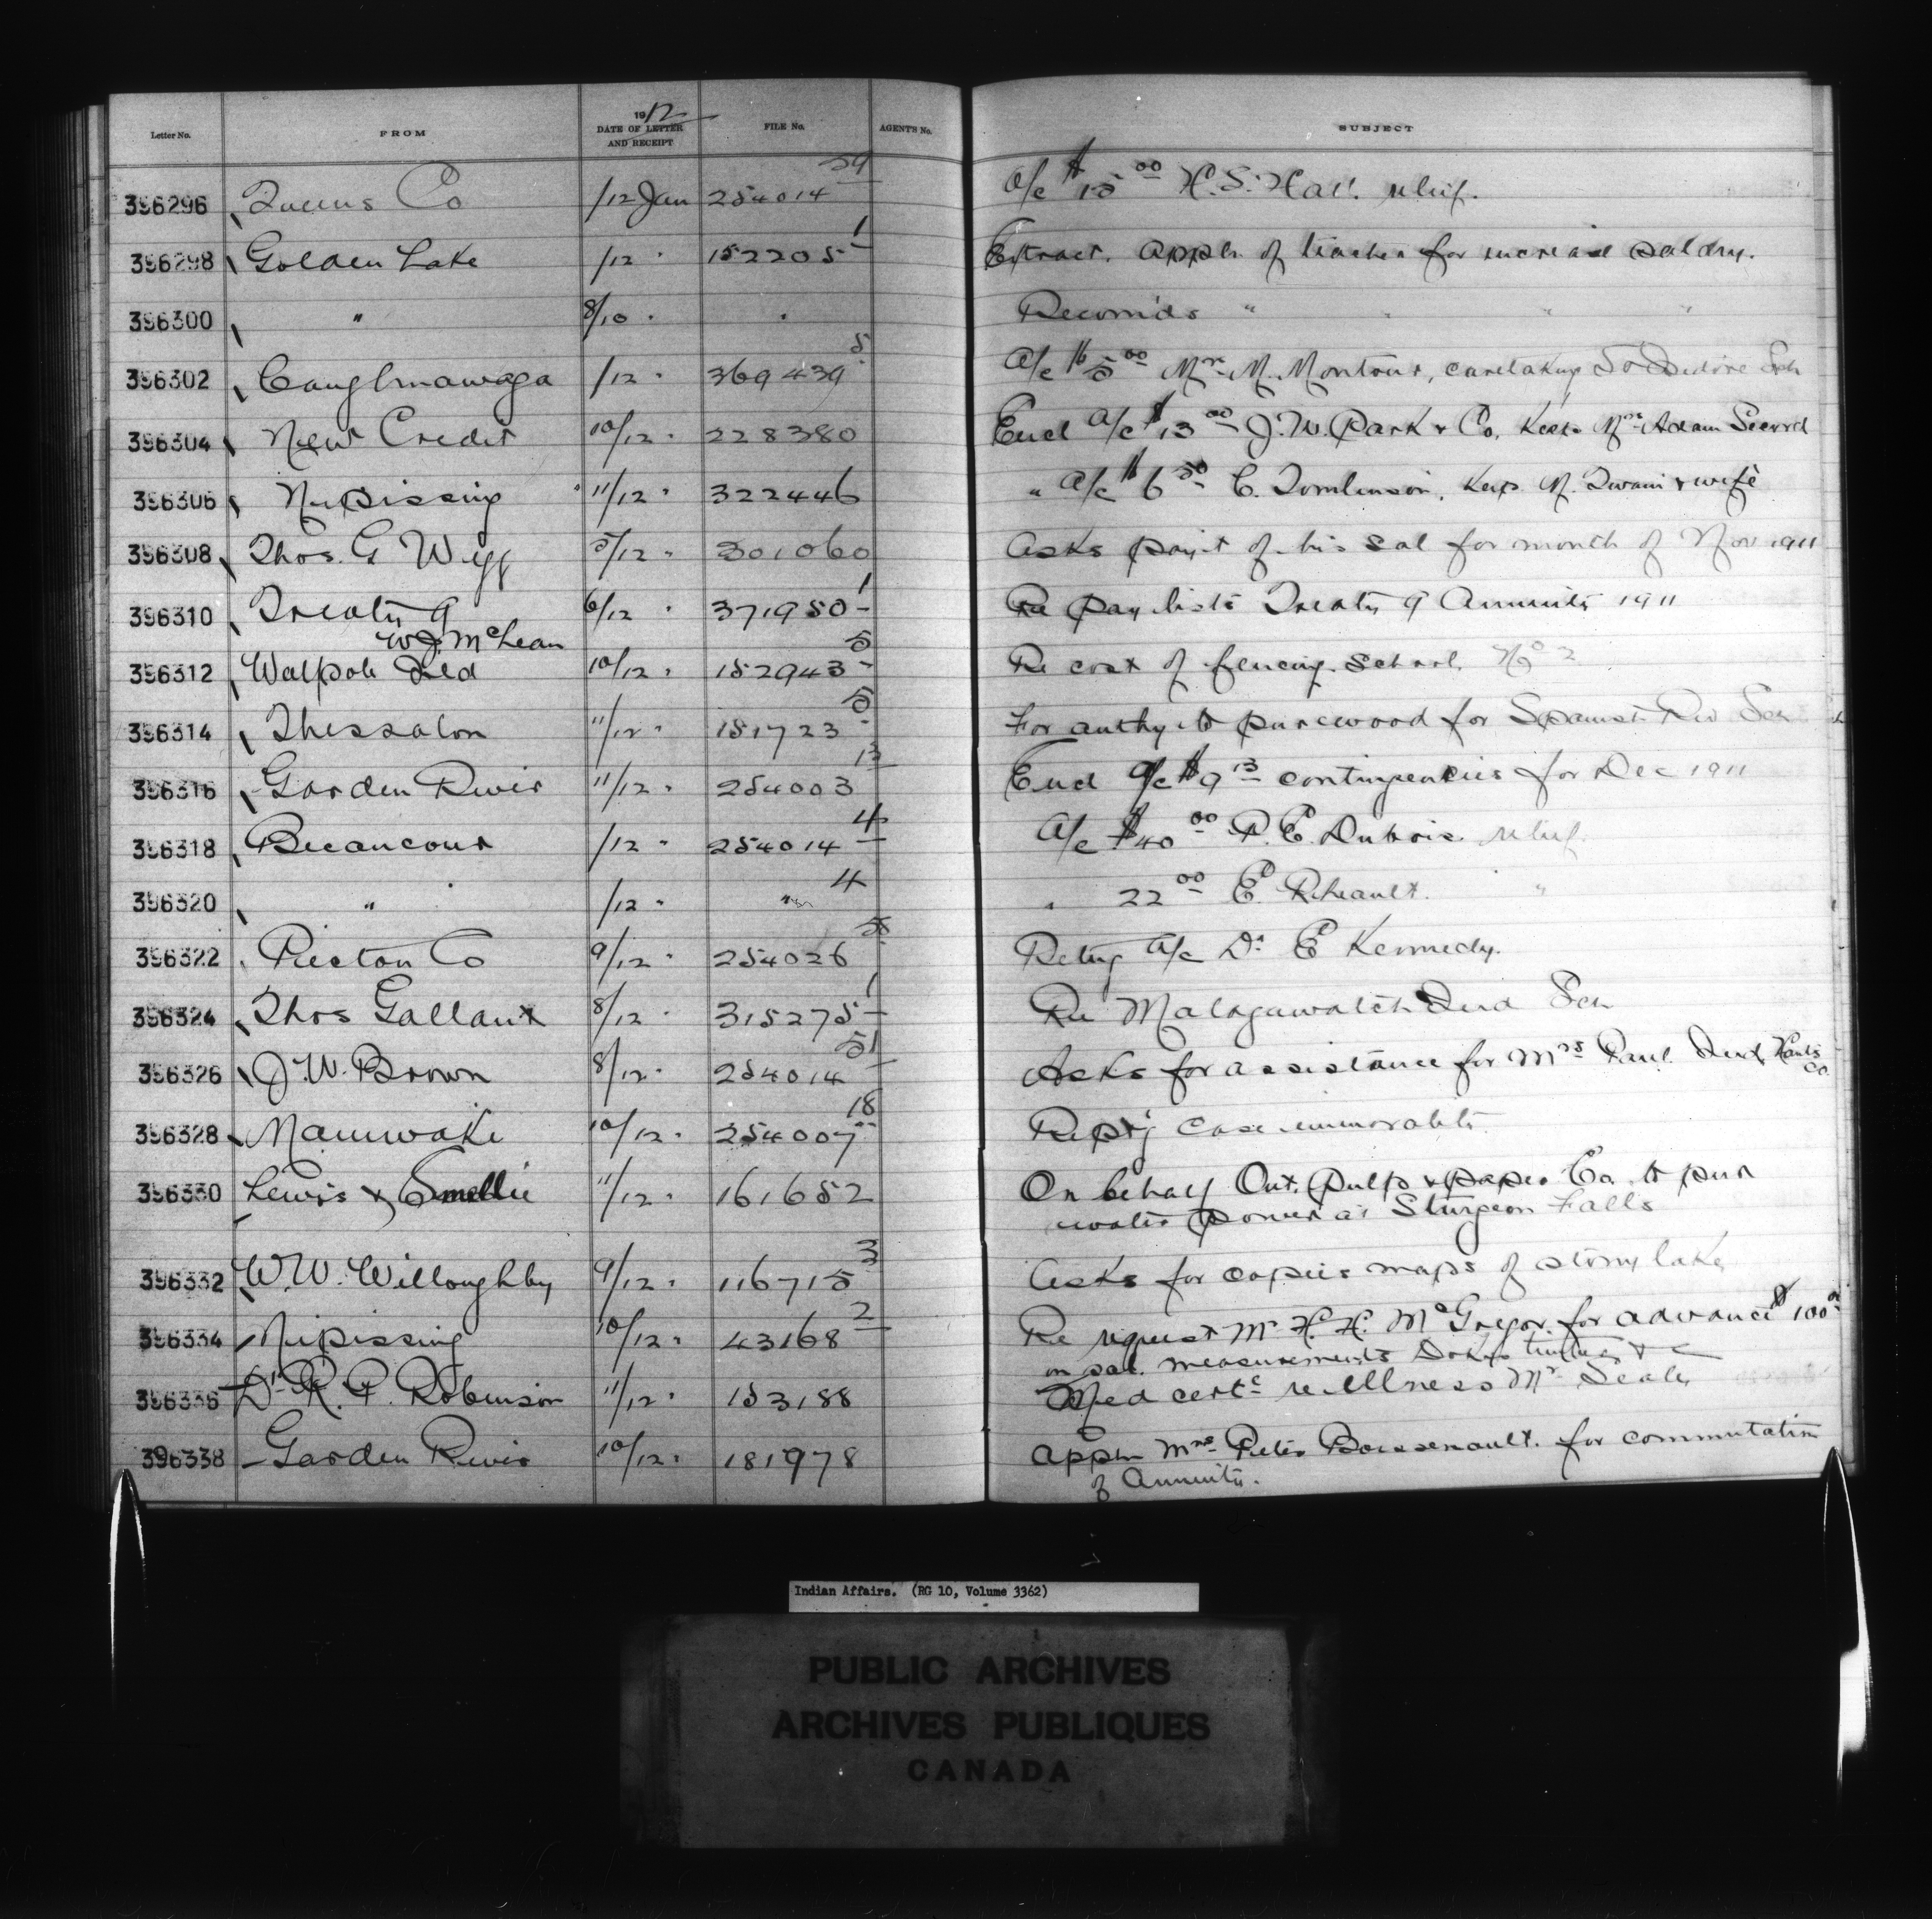 Letter No. FROM 1912 DATE OF LETTER AND RECEIPT FILE No. AGENT'S No. SUBJECT
396296 Queens Co /12 Jan 254014 29 A/c $15 00 H.S. Hall relief.
396298 Golden Lake /12 " 152205 1 Extract. Appln of teacher for increase salary.
396300 " 8/10 " " Recomds " " " "
396302 Caughnawaga /12 " 369439 5 A/c $5 00 Mrs M. Montour, caretaking St Isidore Sch
396304 New Credit 10/12 " 228380 Encl A/c $13 00 J.W. Park & Co. Keep Mrs Adam Secord
396306 Nipissing 11/12 " 322446 " A/c $6 50 C. Tomlinson, Keep M. Twain & wife
396308 Thos. G Wigg 5/12 " 301060 Asks paymt of his sal for month of Nov 1911
396310 Treaty 9 6/12 " 371950 1 Re pay lists Treaty 9 Annuity 1911
W.J. McLean
396312 Walpole Isld 10/12 " 152943 5 Re cost of fencing school No 2
396314 Thessalon 11/12 " 151723 5 For authy to pur wood for Spanish Riv Sch
396316 Garden River 11/12 " 254003 13 Encl A/c $9 13 contingencies for Dec 1911
396318 Becancour /12 " 254014 4 A/c $40 00 P.E. Dubois relief.
396320 " /12 " " 4 " 22 00 E. Riheault. "
396322 Pictou Co 9/12 " 254026 Retng A/c Dr E Kennedy.
396324 Thos Gallant 8/12 " 315275 1 Re Malagawatch Ind Sch
396326 J.W. Brown 8/12 " 254014 51 Asks for assistance for Mrs Paul Ind Hants Co.
396328 Maniwaki 10/12 " 254007 18 Reptg case immorality
396330 Lewis & Smellie 11/12 " 161652 On behalf Ont. Pulp & paper Co. to pur
water power at Sturgeon Falls
396332 W.W. Willoughby 9/12 " 116715 3 Asks for copies maps of stony lake
396334 Nipissing 10/12 " 43168 2 Re request Mr H.H. McGregor for advance $100 00
on sal. measurements Dokis timber &c
396336 Dr R.P. Robinson 11/12 " 153188 Med certc re illness Mr Sealy
396338 Garden River 10/12 " 181978 Appln Mrs Peter Boissenault. for commutation
of Annuity.
Indian Affairs. (RG 10, Volume 3362)
PUBLIC ARCHIVES
ARCHIVES PUBLIQUES
CANADA